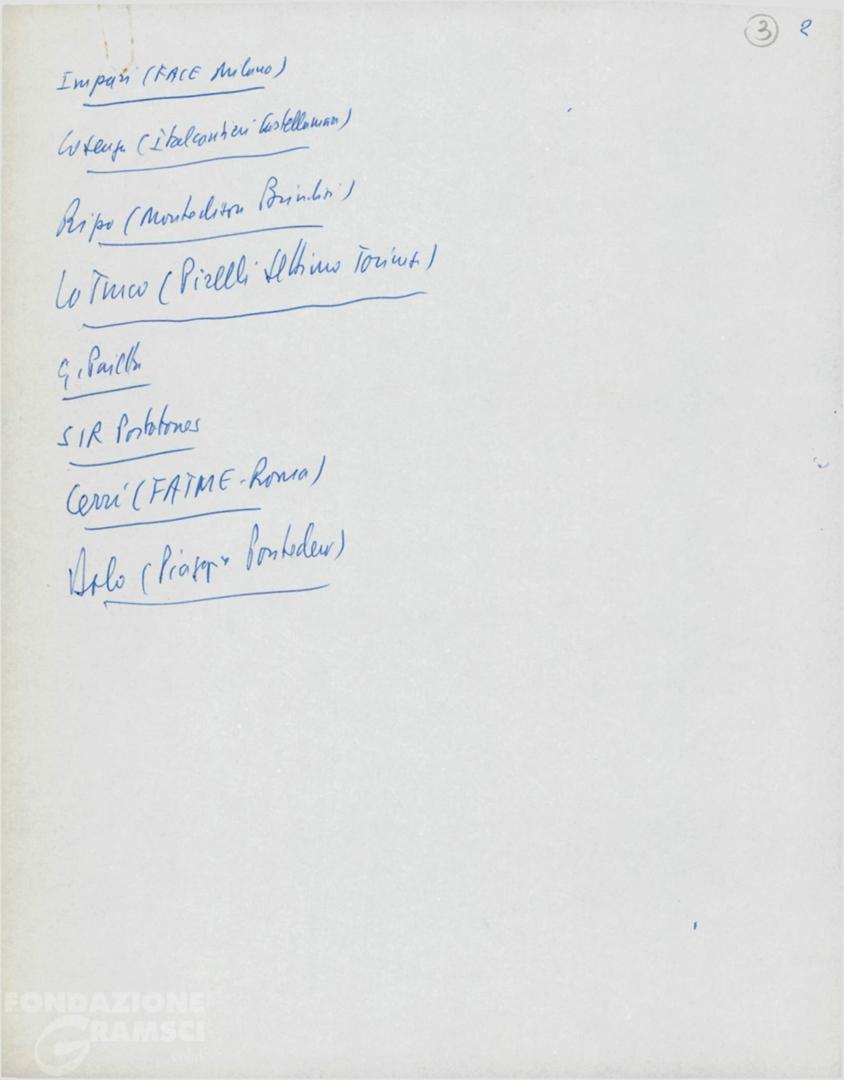 3 2
Impari (FACE Milano)
(Italcantieri Castellammare)
Ripa (Montedison Brindisi)
Lo Turco (Pirelli Settimo Torinese)
G.
SIR Portotorres
Cerri (FATME - Roma)
(Piaggio Pontedera)
FONDAZIONE
GRAMSCI